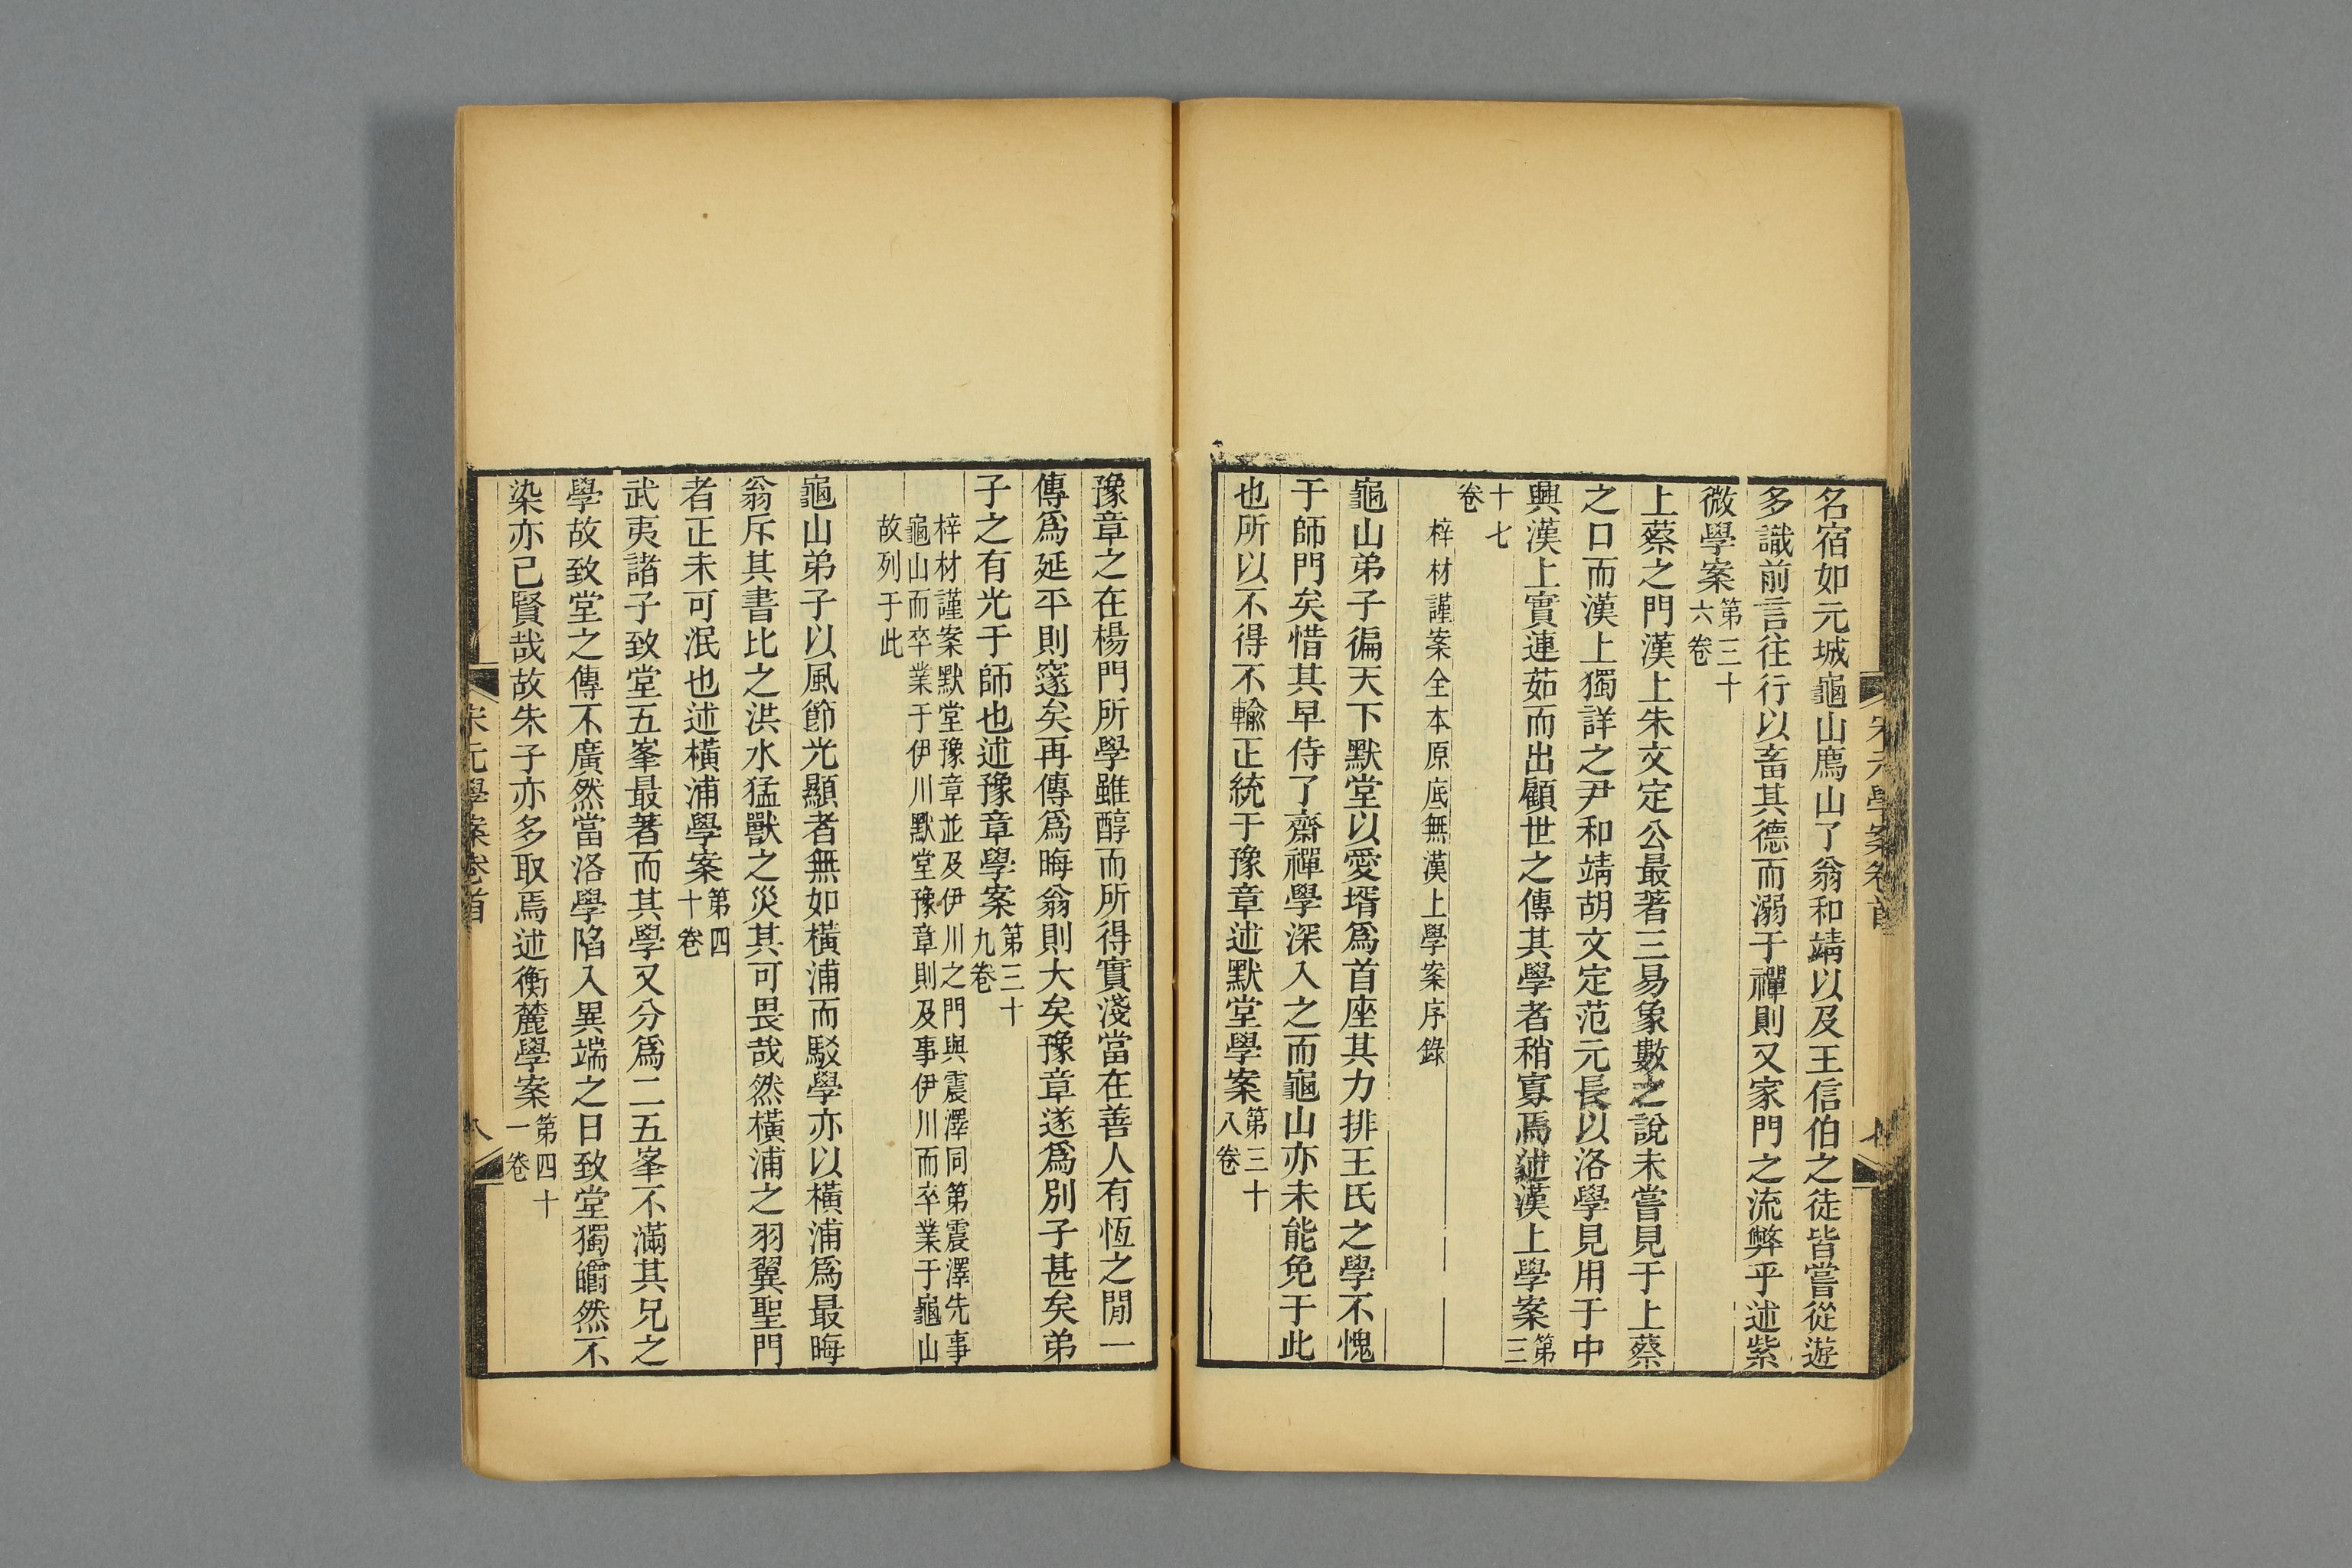 名宿如元城龜山廌山了翁和靖以及王信伯之徒皆嘗從遊
多識前言往行以畜其德而溺于禪則又家門之流弊乎述紫
微學案第三十六卷
上蔡之門漢上朱文定公最著三易象數之說未嘗見于上蔡
之口而漢上獨詳之尹和靖胡文定范元長以洛學見用于中
興漢上實連茹而出顧世之傳其學者稍寡焉述漢上學案第三
十七卷
梓材謹案全本原底無漢上學案序錄
龜山弟子徧天下默堂以愛壻爲首座其力排王氏之學不愧
于師門矣惜其早侍了齋禪學深入之而龜山亦未能免于此
也所以不得不輸正統于豫章述默堂學案第三十八卷
宋元學案卷首
豫章之在楊門所學雖醇而所得實淺當在善人有恆之閒一
傳爲延平則邃矣再傳爲晦翁則大矣豫章遂爲別子甚矣弟
子之有光于師也述豫章學案第三十九卷
梓材謹案默堂豫章並及伊川之門與震澤同第震澤先事
龜山而卒業于伊川默堂豫章則及事伊川而卒業于龜山
故列于此
龜山弟子以風節光顯者無如橫浦而駁學亦以橫浦爲最晦
翁斥其書比之洪水猛獸之災其可畏哉然橫浦之羽翼聖門
者正未可泯也述橫浦學案第四十卷
武夷諸子致堂五峯最著而其學又分爲二五峯不滿其兄之
學故致堂之傳不廣然當洛學陷入異端之日致堂獨皭然不
染亦已賢哉故朱子亦多取焉述衡麓學案第四十一卷
宋元學案卷首
八